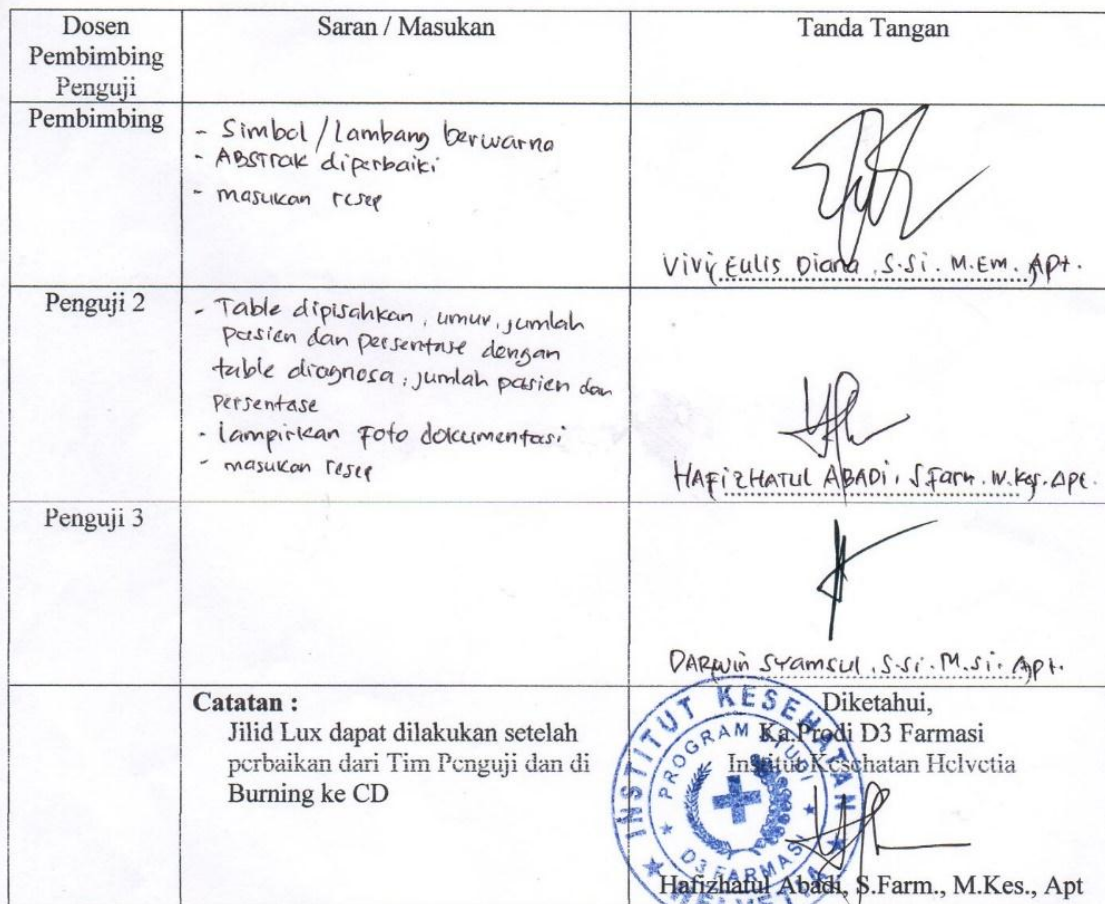 Dosen
Pembimbing
Penguji
Saran / Masukan
Tanda Tangan
Pembimbing
- Simbol / Lambang berwarna
- ABSTRAK diperbaiki
- masukan resep
Vivi Eulis Diana, S.Si. M.EM. Apt.
Penguji 2
- Table dipisahkan, umur, jumlah
pasien dan persentase dengan
table diagnosa, jumlah pasien dan
persentase
- lampirkan Foto dokumentasi
- masukan resep
HAFIZHATUL ABADI, S.Farm. M.Kes. Apt.
Penguji 3
DARWIN SYAMSUL, S.Si. M.Si. Apt.
Catatan :
Jilid Lux dapat dilakukan setelah
perbaikan dari Tim Penguji dan di
Burning ke CD
Diketahui,
Ka.Prodi D3 Farmasi
Institut Kesehatan Helvetia
INSTITUT KESEHATAN
HELVETIA
PROGRAM STUDI
D3 FARMASI
Hafizhatul Abadi, S.Farm., M.Kes., Apt